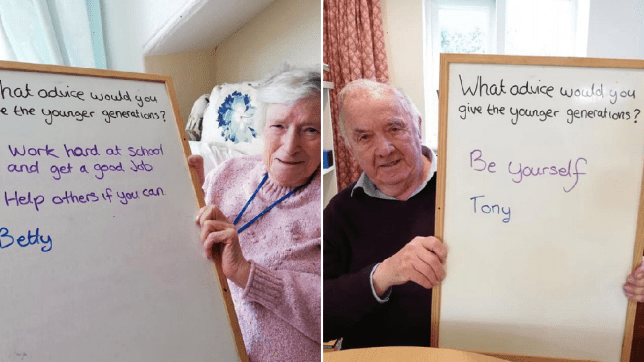 hat advice would you
e the younger generations?
Work hard at school
and get a good Job
Help others if you can.
Betty
What advice would you
give the younger generations?
Be yourself
Tony